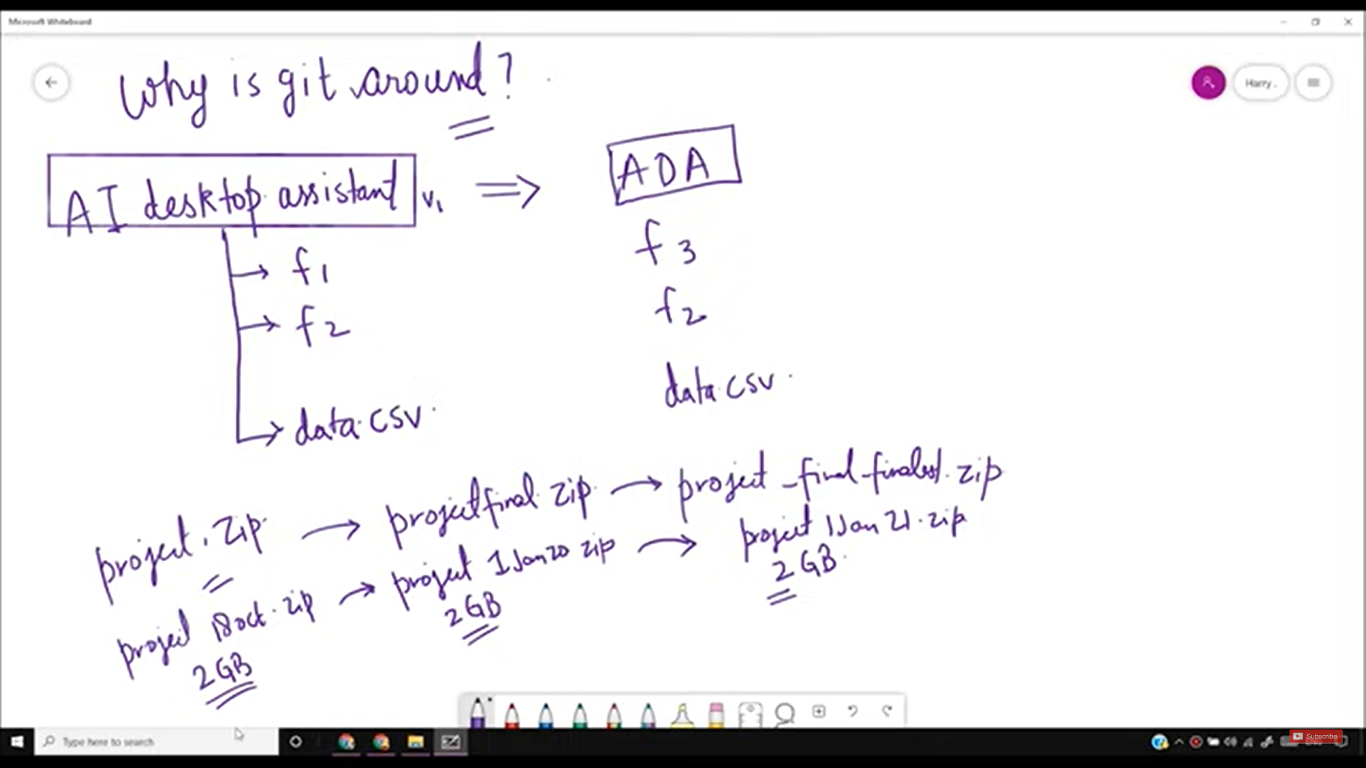 Microsoft Whiteboard
Why is git around?
Harry .
AI desktop assistant v1 ⇒ ADA
f1
f2
data.csv
f3
f2
data.csv
project.zip → projectfinal.zip → project_final_finalest.zip
project 18oct.zip → project 1Jan20 zip → project 1Jan21.zip
2GB
2GB
2GB
Type here to search
Subscribe